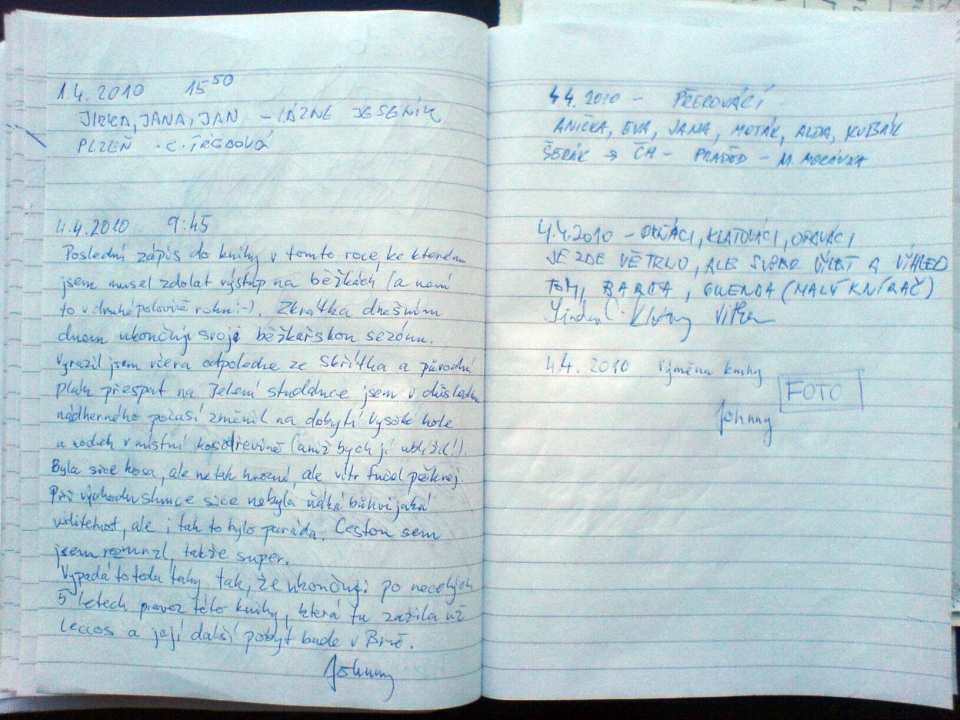 1.4.2010 15⁵⁰
JIRKA, JANA, JAN – LÁZNE JESENÍK
PLZEŇ - Č. TŘEBOVÁ
4.4.2010 9:45
Poslední zápis do knihy v tomto roce, ke kterému
jsem musel zdolat výstup na běžkách (a není
to v druhé polovině roku :-). Zkrátka dnešním
dnem ukončuji svoji běžkařskou sezónu.
Vyrazil jsem včera odpoledne ze Skřítka a původní
plán přespat na Jelení studánce jsem v důsledku
nádherného počasí změnil na dobytí Vysoké hole
a nocleh v místní kosodřevině (aniž bych jí ublížil!).
Byla sice kosa, ale ne tak hrozná, ale vítr fučel pěknej.
Při východu slunce sice nebyla ňáká bůhvíjaká
viditelnost, ale i tak to bylo paráda. Cestou sem
jsem rozmrzl, takže super.
Vypadá to teda taky tak, že ukončuji po necelých
5 letech provoz této knihy, která tu zažila už
leccos a její další pobyt bude v Brně.
Johnny
4.4.2010 – PŘEROVÁCÍ
ANIČKA, EVA, JANA, MOTÁK, ALDA, KUBÁK
ŠERÁK → ČH – PRADĚD – M. MORÁVKA
4.4.2010 – KLATOVÁCI, OPAVÁCI
JE ZDE VĚTRNO, ALE SUPER VÝLET A VÝHLED
TOM, BÁRA, (MALÝ KNÍRAČ)
4.4. 2010 výměna knihy
FOTO
Johnny